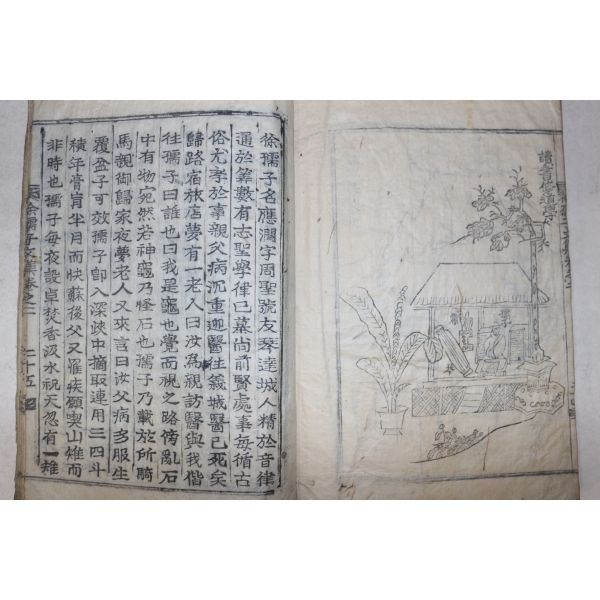 徐孺子名應瀾字周聖號友琴達城人精於音律
通於算數有志聖學律己慕尚前賢處事每循古
俗尤孝於事親父病沉重迎醫往義城醫已死矣
歸路宿旅店夢有一老人曰汝為親訪醫與我偕
往孺子曰誰也曰我是龜也覺而視之路傍亂石
中有物宛然若神龜乃怪石也孺子乃載於所騎
馬親御歸家夜夢老人又來言曰汝父病多服生
覆盆子可效孺子卽入深峽中摘取連用三四斗
積年膏肓半月而快蘇後父又罹疾願喫山雉而
非時也孺子每夜設卓焚香汲水祝天忽有一雉
徐孺子文集卷之二
二十五
讀書修道